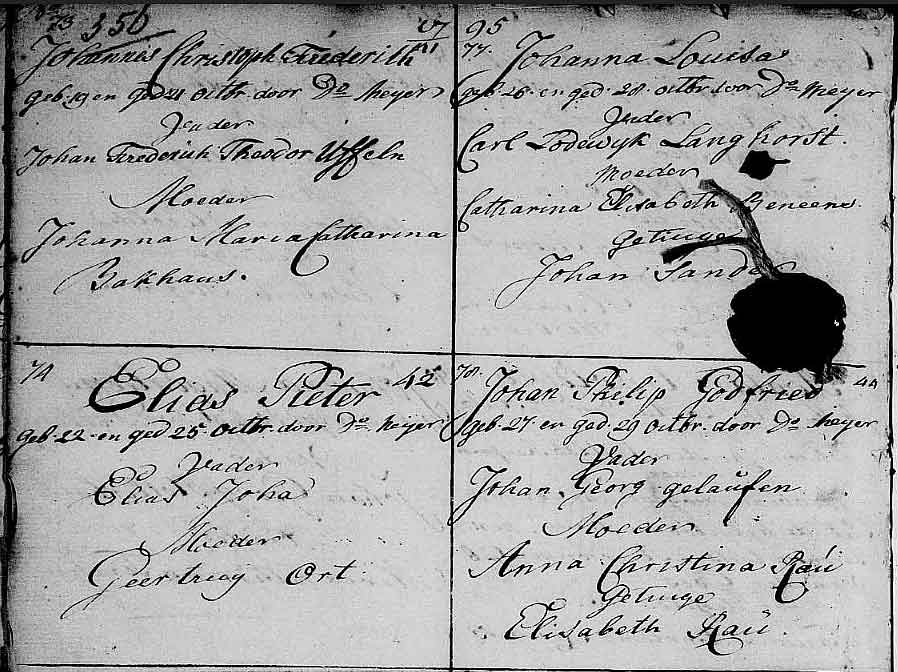 73 356
Johannes Christoph Frederith
geb 19 en ged 21 octbr. door Do Meyer
Vader
Johan Frederich Theodor Uffeln
Moeder
Johanna Maria Catharina
Bakhaus.
95
77. Johanna Louisa
geb. 26 en ged. 28. octbr. door Do Meyer
Vader
Carl Lodewyk Langhorst.
Moeder
Catharina Elisabeth
Getuige
Johan
74
Elias Pieter 42
geb. 22 en ged 25. octbr. door Do Meijer
Vader
Elias Joha
Moeder
Geertruy Ort
78. Johan Philip Godfried 44
geb. 27 en ged. 29 octbr. door Do Meyer
Vader
Johan Georg gelaufen
Moeder
Anna Christina Raú
Getuige
Elisabeth Raü.